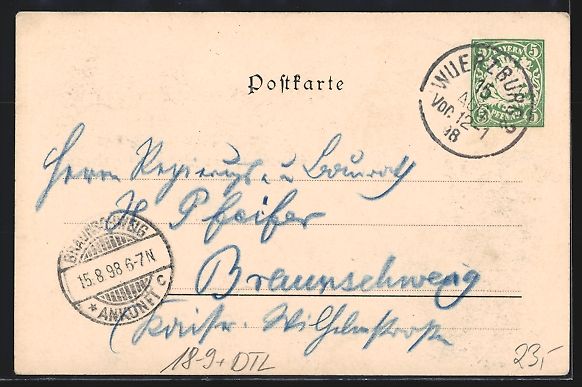 Postkarte
BAYERN
5 5
WUERZBURG
15
AUG
Vor. 12-1
98
Herrn Regierungs- u. Baurath
H Pfeifer
Braunschweig
Kaiser Wilhelmstraße
BRAUNSCHWEIG
15.8.98 6-7N
C
* ANKUNFT
18-9+DTL
23,-